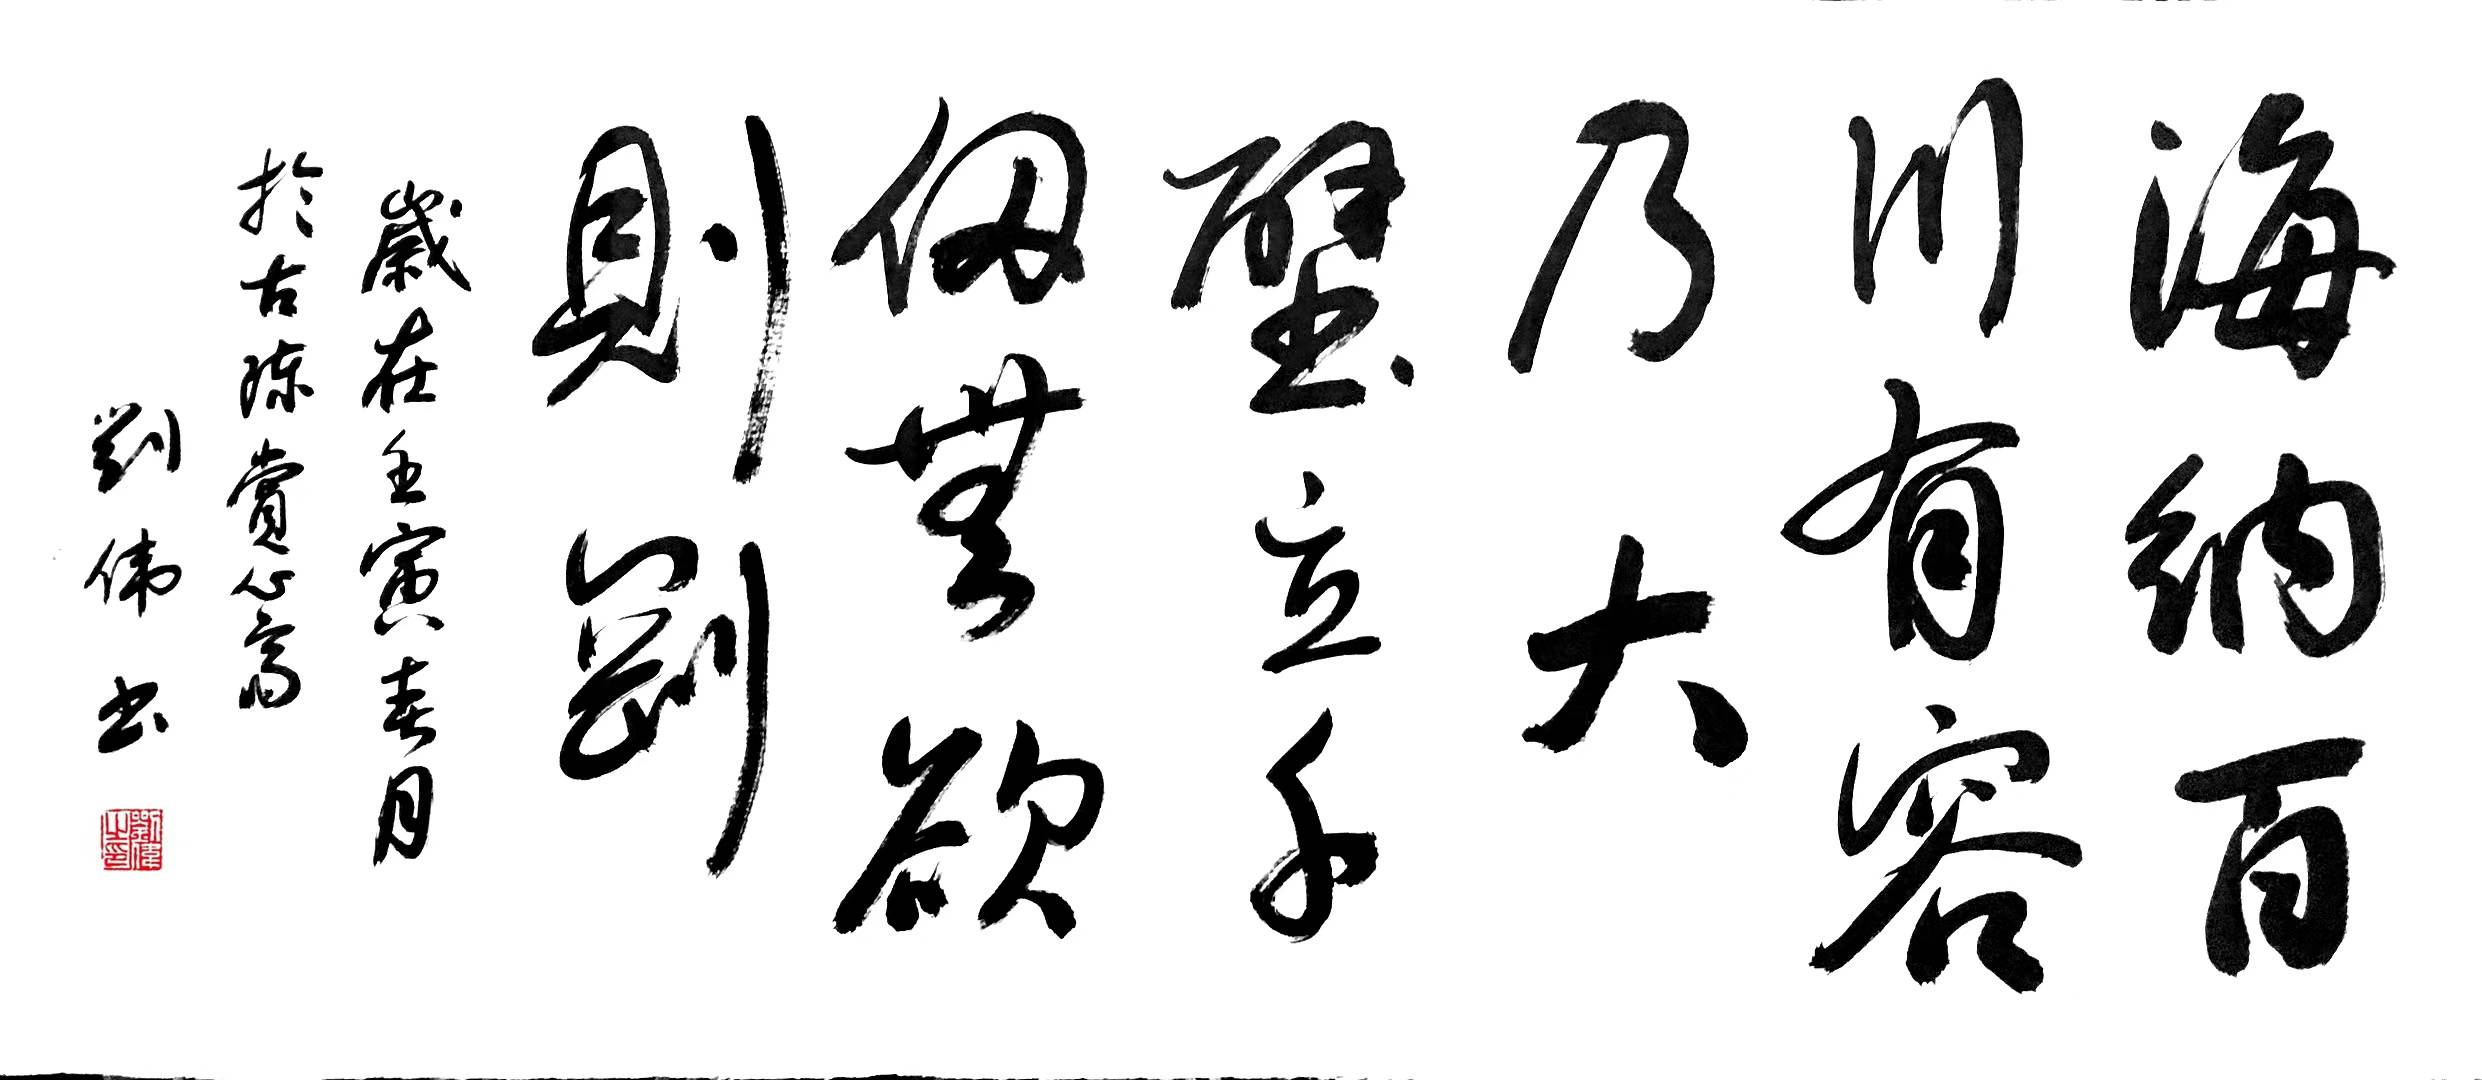 海納百
川有容
乃大
壁立千
仞無欲
則剛
歲在壬寅春月
於古陳賞心齋
劉偉書